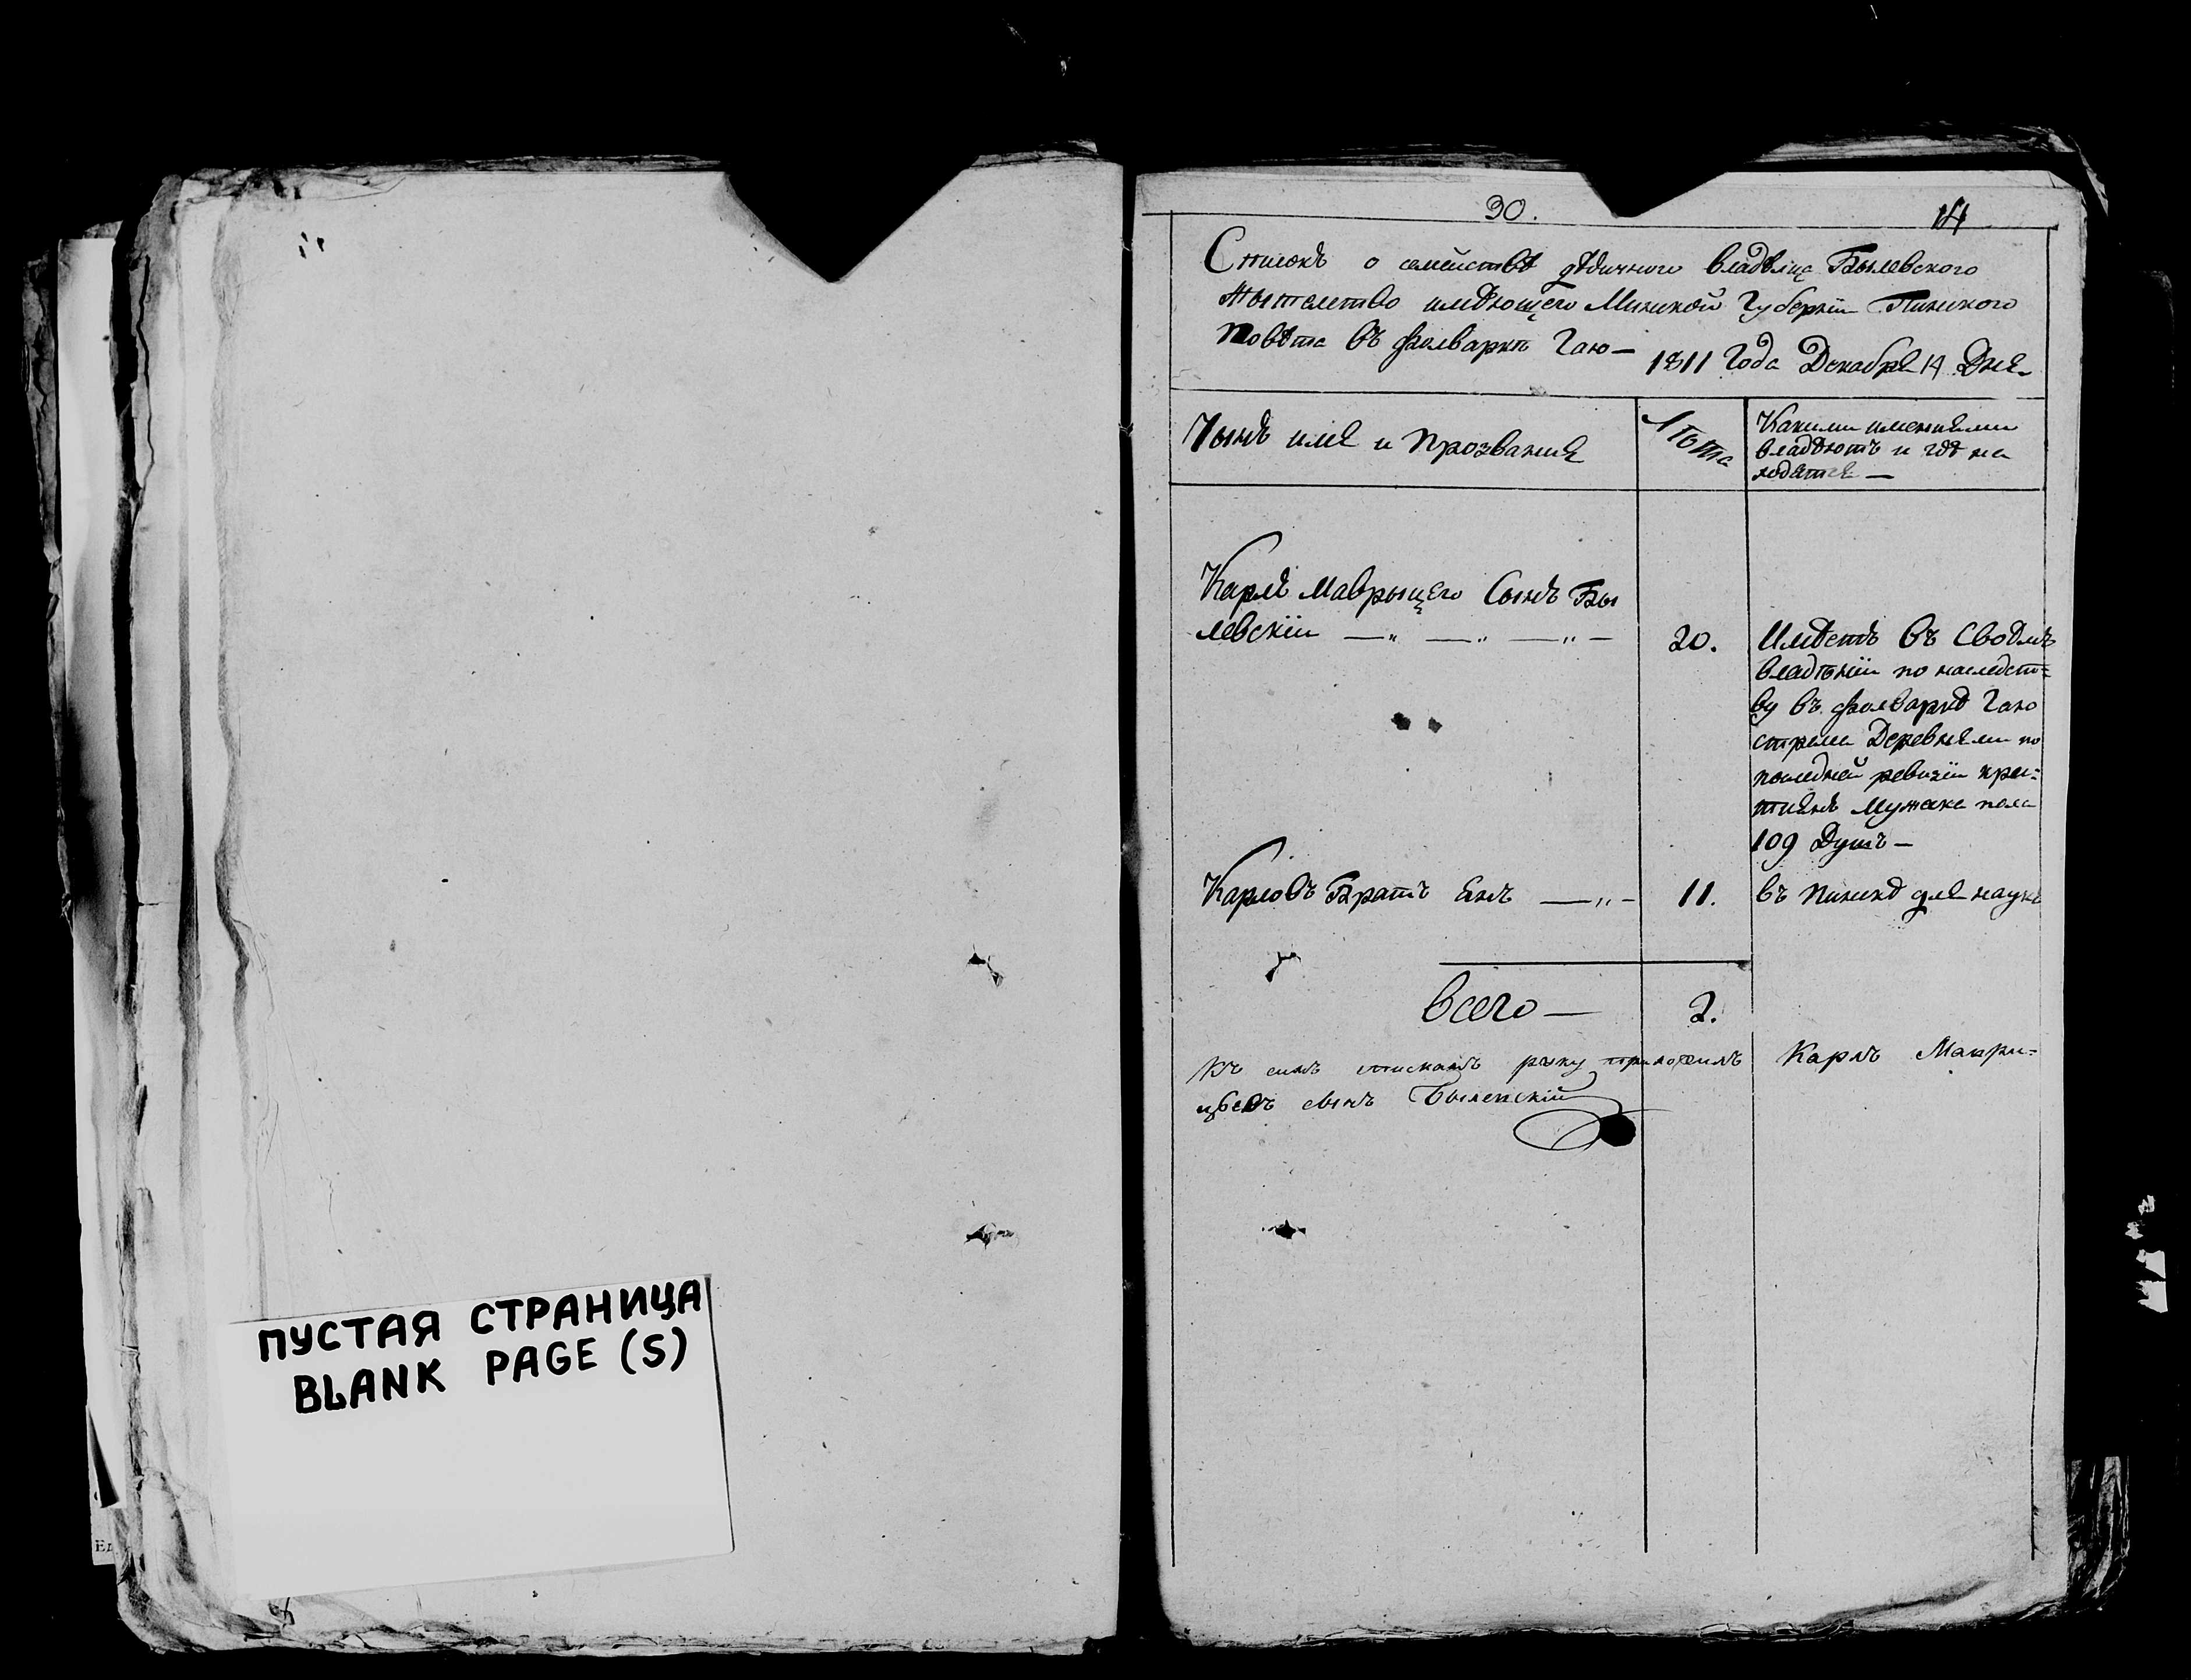 ПУСТАЯ СТРАНИЦА
BLANK PAGE (S)
30.
14
Списокъ о семействѣ дѣдичного владѣлца Былевского
жытелство имѣющего Минской Губерніи Пинского
Повѣта въ фолваркѣ Гаю—
1811 Года Декабря 14 Дня
Чынъ имя и Прозвания
Лѣта
Какими имениями
владѣютъ и гдѣ на
ходятся —
Карлъ Маврыцего Сынъ Бы
левскіи
20.
Имѣетъ въ Своѣмъ
владѣніи по наследст=
ву въ фолваркѣ Гаю
стреми Деревнями по
последней ревизіи кре=
стиянъ Мужска пола
109 Душъ —
Карловъ Братъ Янъ
11.
въ Пинскѣ для наукъ
Всего —
2.
Къ симъ спискамъ руку приложилъ Карлъ Маври=
цевъ сынъ Былевскій